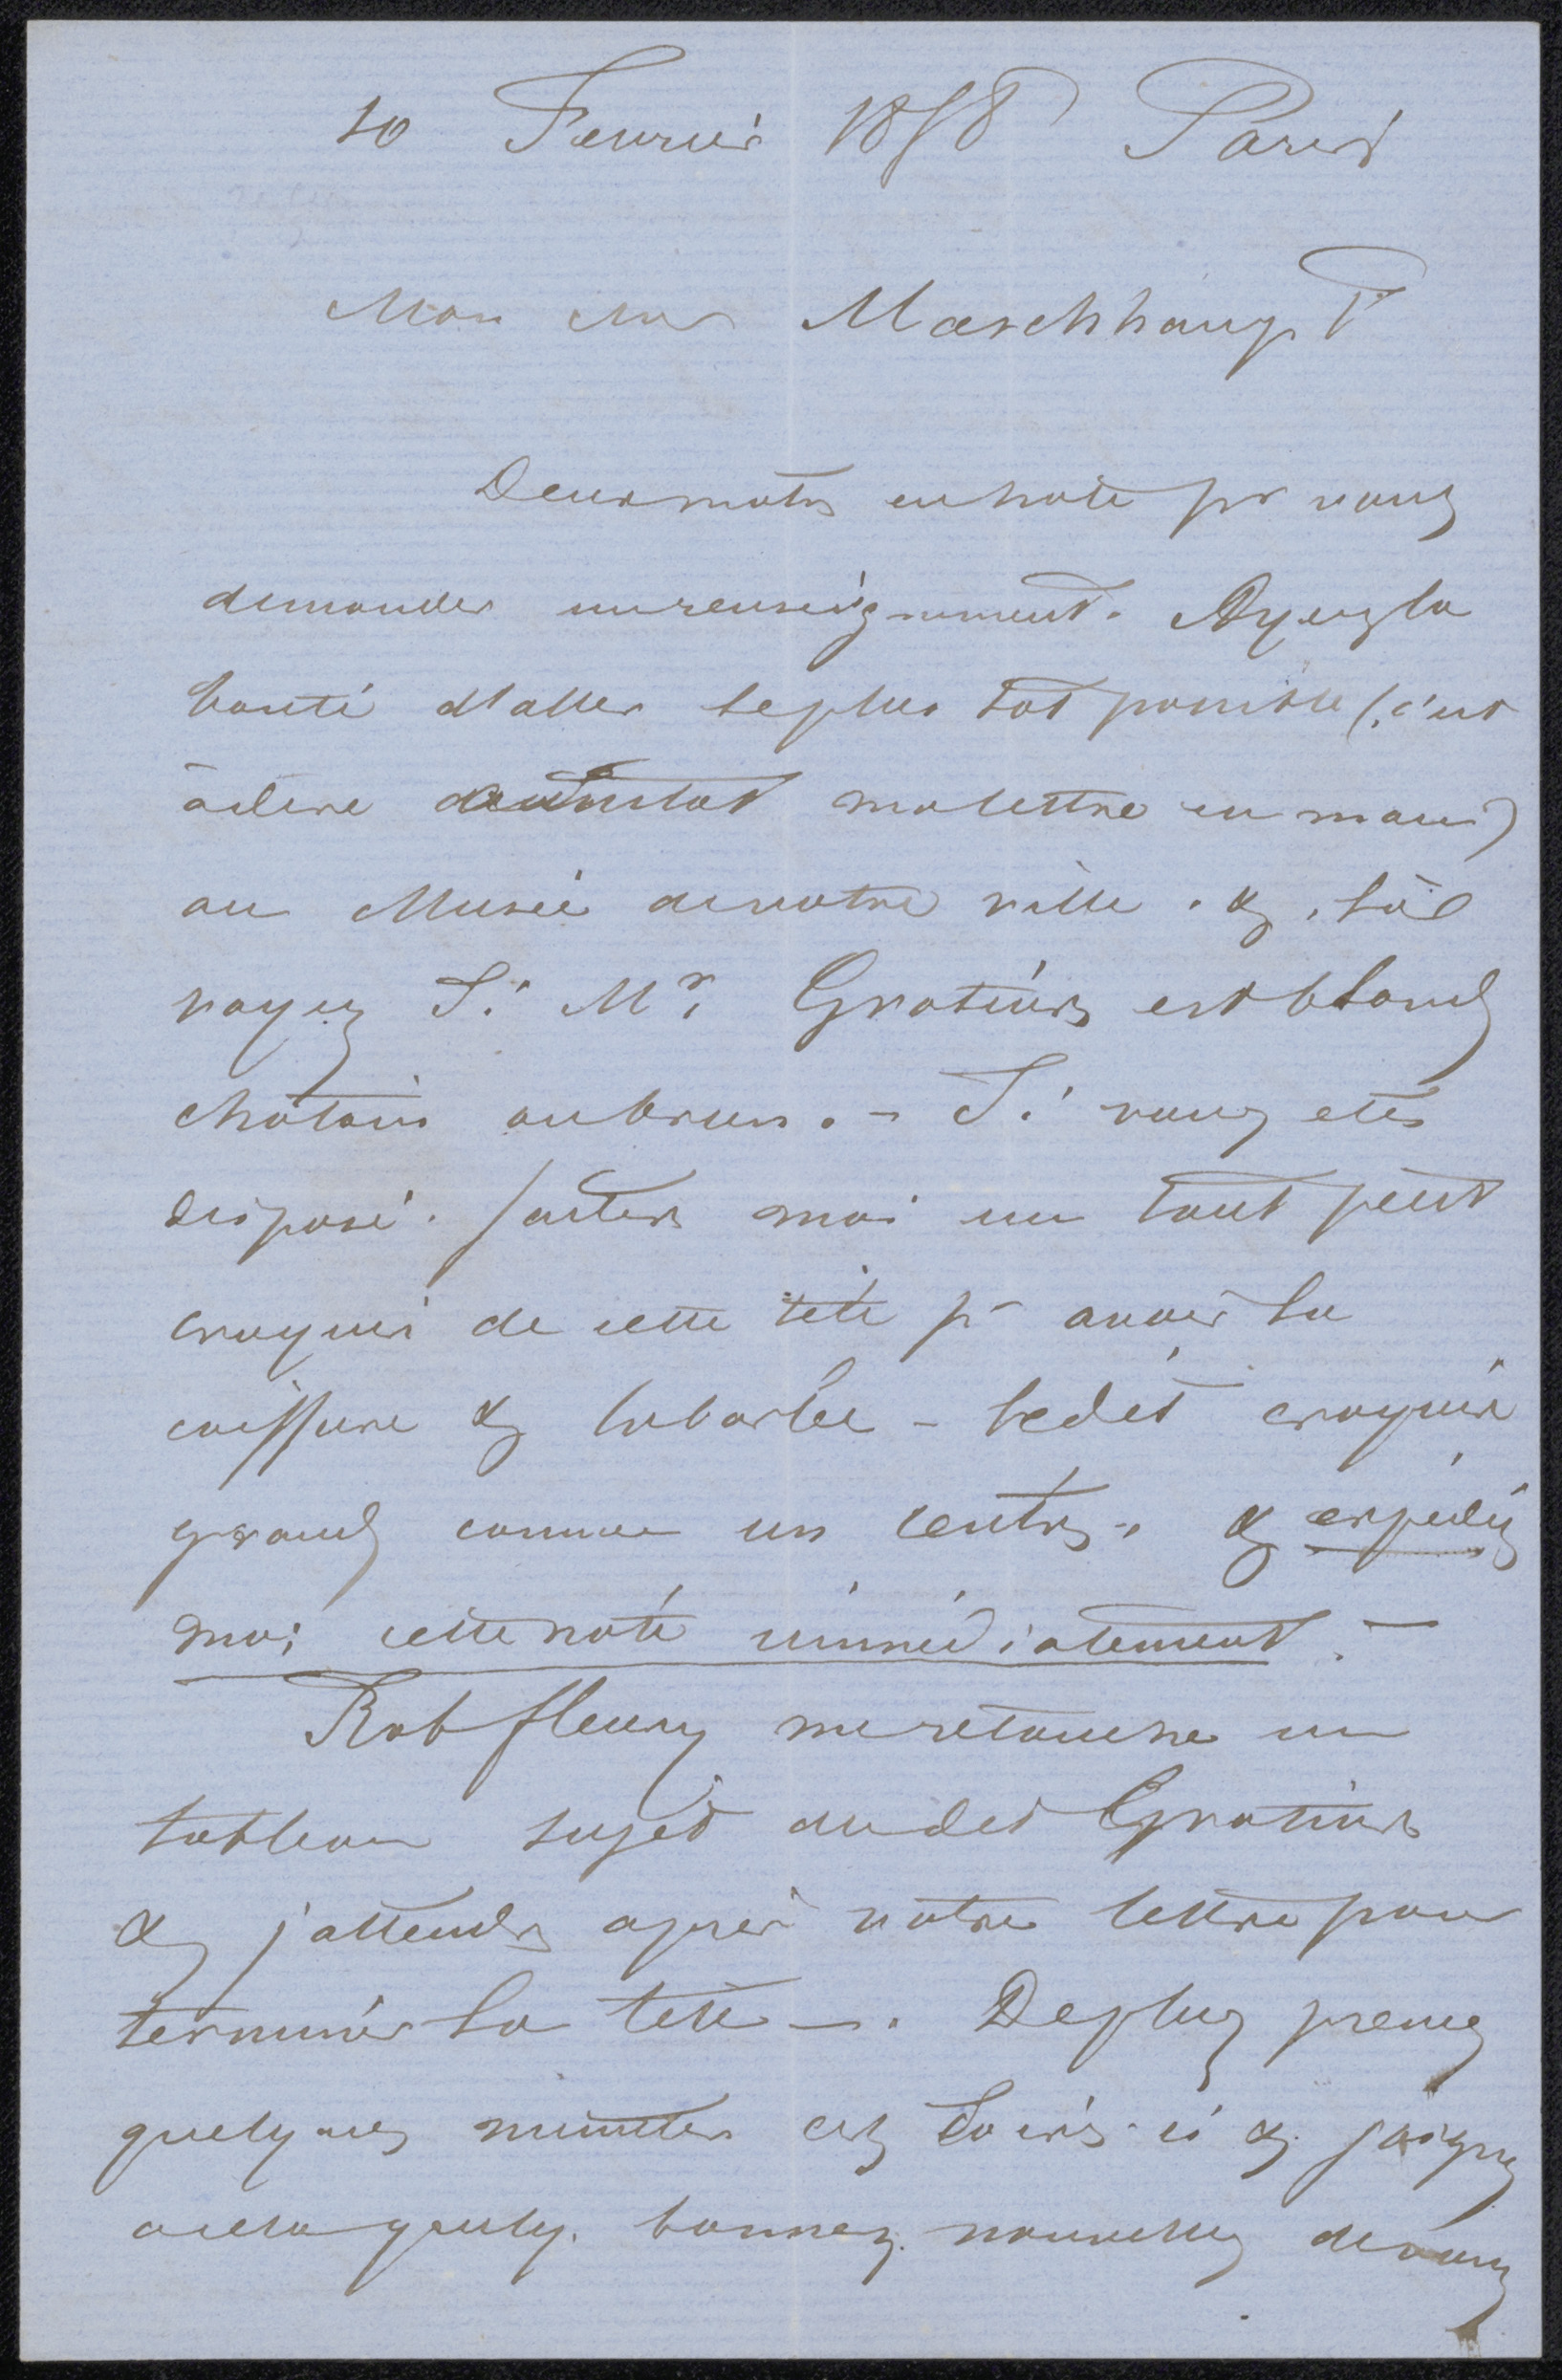 10 Fevrier 1858 Paris
Mon cher Maschhaupt
Deux mots en hate pr vous
demander un renseignement. Ayez la
bonté d'aller le plus tot possible (c'est
à dire aussitot ma lettre en main)
au Musée de votre ville. & là
voyez Si Mr. Grotius est blond
chatain ou brun. - Si vous etes
disposé. faites moi un tout petit
croquis de cette tete pr avoir la
coiffure & la barbe - le dit croquis
grand comme un cents. & expediez
moi cette note immédiatement. -
Rob fleury me retourne un
tableau sujet du dit Grotius
& j'attends après votre lettre pour
terminer la tete -. De plus prenez
quelques minutes ces jours ci & joignez
a cela quelq. bonnes. nouvelles de vous